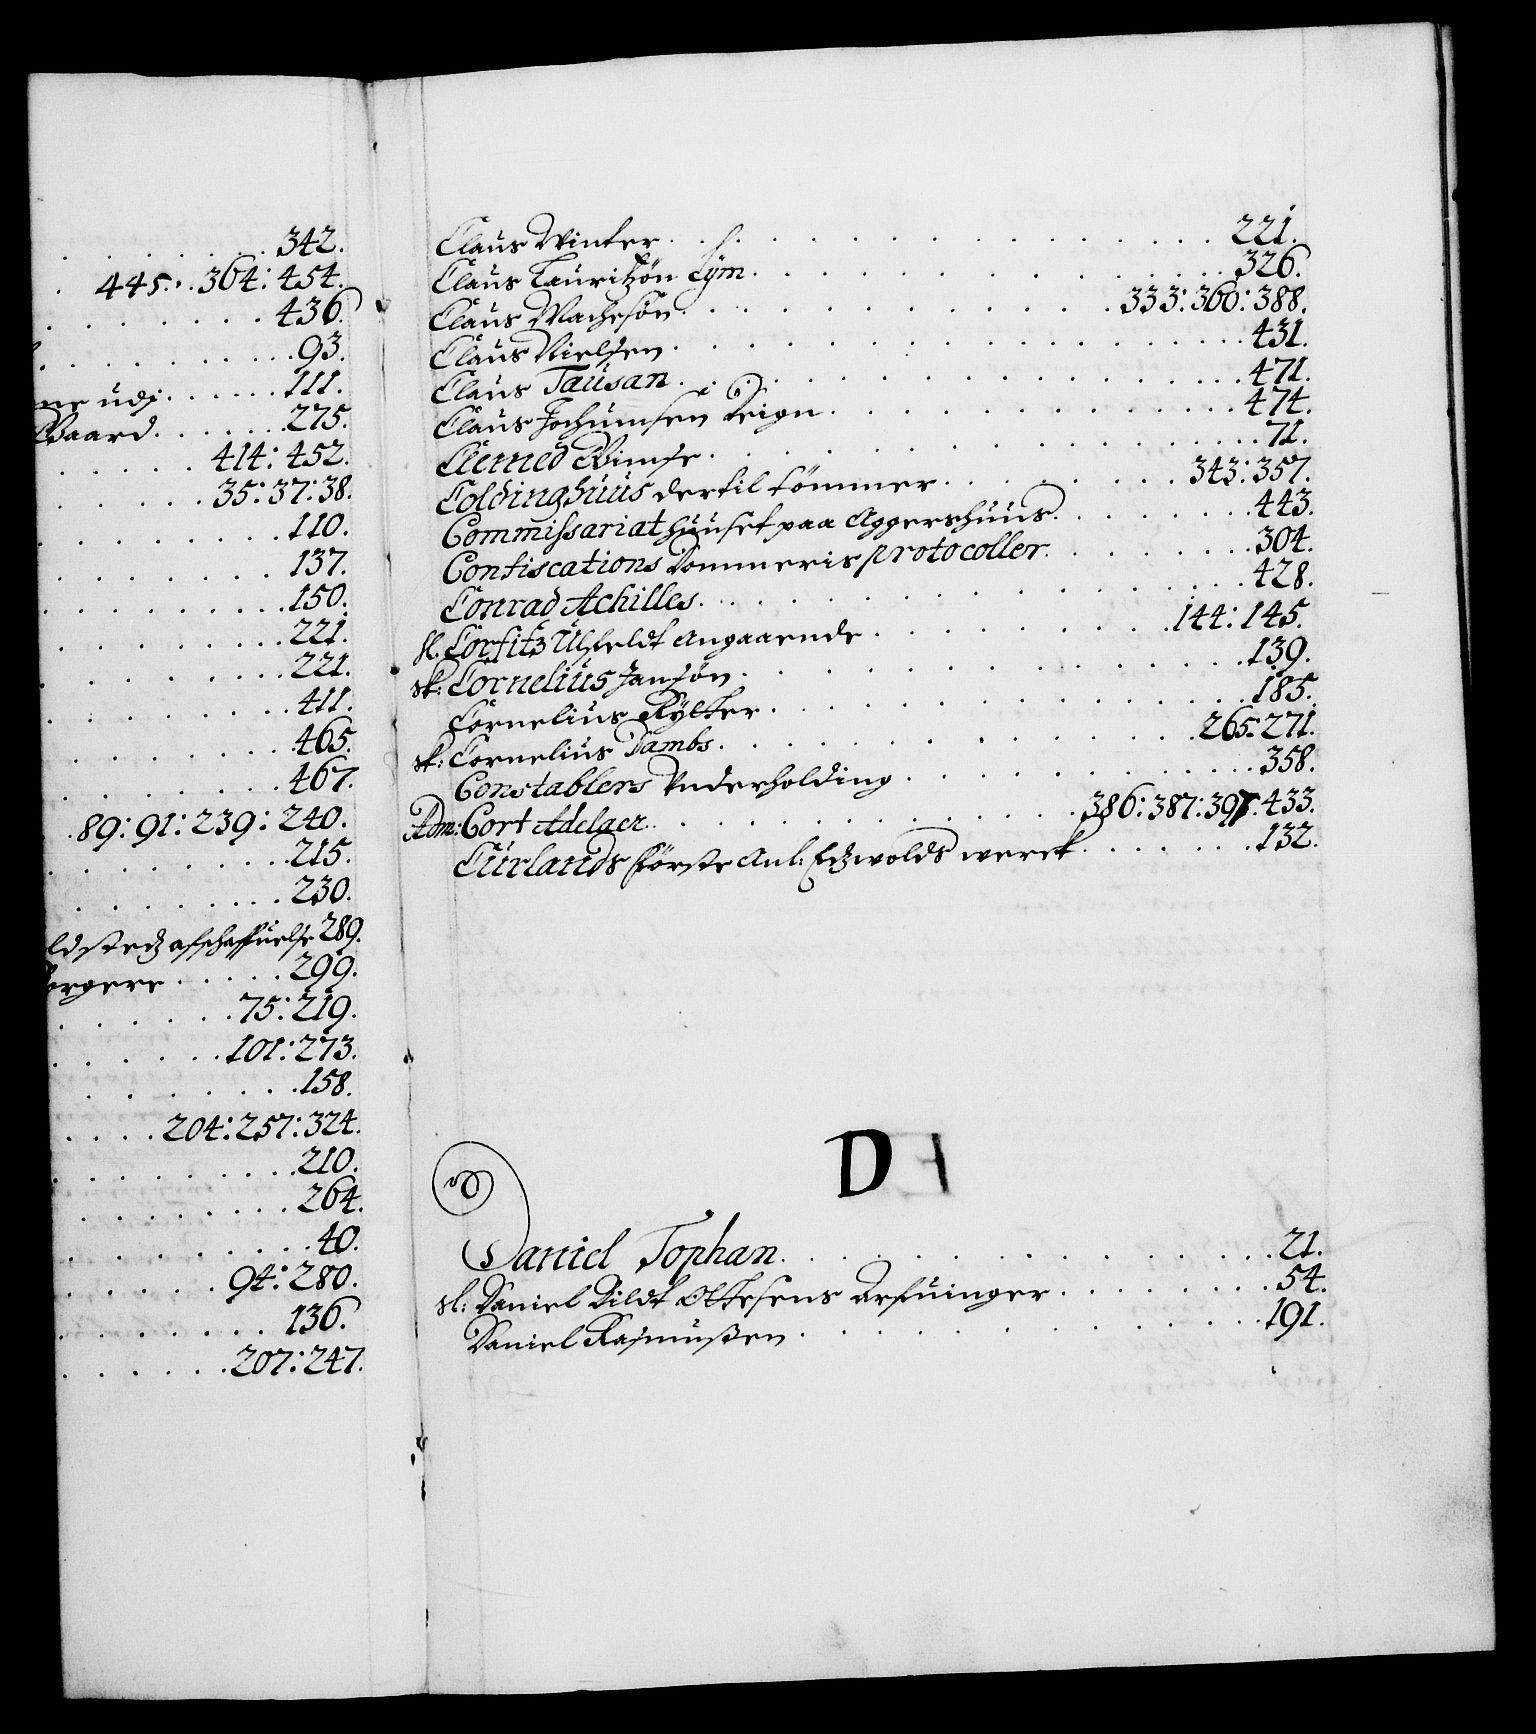 342.
445. 364: 454.
436.
93.
ne udj 111.
Gaard 275.
414: 452.
35: 37: 38.
110.
137.
150.
221.
221.
411.
465.
467.
89: 91: 239: 240.
215.
230.
ldstedz afschaffuelse 289.
orgere 299.
75: 219.
101: 273.
158.
204: 257: 324.
210.
264.
40.
94: 280.
136.
207: 247.
Claus Winter 221.
Claus Lauritzøn Lÿm 326.
Claus Machesøn 333: 360: 388.
Claus Nielsen 431.
Claus Tausan 471.
Claus Jochumsen Teign 474.
Clemed Wimse 71.
Coldinghuus dertil tömmer 343: 357.
Commissariat huuset paa Aggershuus 443.
Confiscations Dommeris protocoller 304.
Conrad Achilles 428.
sl. Corfitz Ulfeldt Angaaende 144: 145.
sk: Cornelius Jansøn 139.
Cornelius Rytter 185.
sk: Cornelius Tambs 265: 271.
Constablers Vnderholding 358.
Adm: Cort Adelaer 386: 387: 397: 433.
Curlands Förste Anl: Edzwolds werck 132.
D
Daniel Tophan 21.
sl: Daniel Bildt Ottesens Arfuinger 54.
Daniel Rasmussen 191.